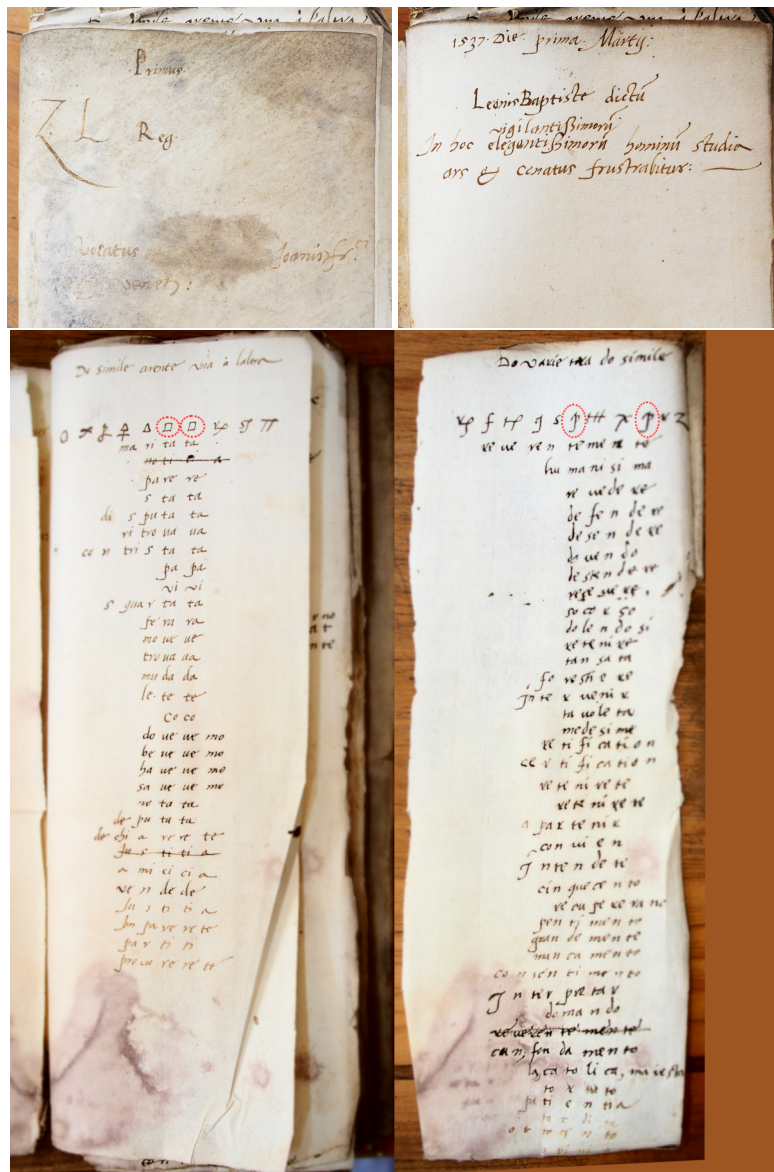 Primus.
Z L Reg.
1537. Die prima. Martÿ:
Leonis Baptiste dictũ
vigilantißimorũ
In hoc elegantißimorũ hominũ studio
ars & conatus frustrabitur:
De simile avente una à laltra
ma ri ta ta
no ti ti a
pa re re
s ta ta
di s pu ta ta
ri tro ua ua
co n tri s ta ta
pa pa
vi vi
s qua r ta ta
fe ra ra
mo ue ue
tro ua ua
mu da da
le te te
co co
do ue ue mo
be ue ue mo
ha ue ue mo
sa ue ue mo
no ta ta
de pu ta ta
de chi a re re te
Ju s ti ti a
a mi ci ci a
ve n de de
Ju s ti ti a
pa r ti ti
procu re re te
Do varie una do simile
re ue ren te men te
hu ma ni si ma
re ue de re
de fe n de re
de se n de re
do ue n do
de sten de re
so co r so
do le n do si
re te ni re
tan sa ta
fo re sti e re
In te r ueni r
ta uo le ta
me de si me
re ti fi ca ti o n
ce r ti fi ca ti o n
re te ni re te
re te ni re te
a par te ni r
con vi e n
In te n de te
cin que ce n to
re cu pe re ra no
sen ti men to
gran de men te
man ca men to
co n sen ti me n to
In ter pre tar
do man do
re ue ren te men te
con, fon da men to
la, ca to li ca, ma ie sta
to r na to
pa ti e n tia